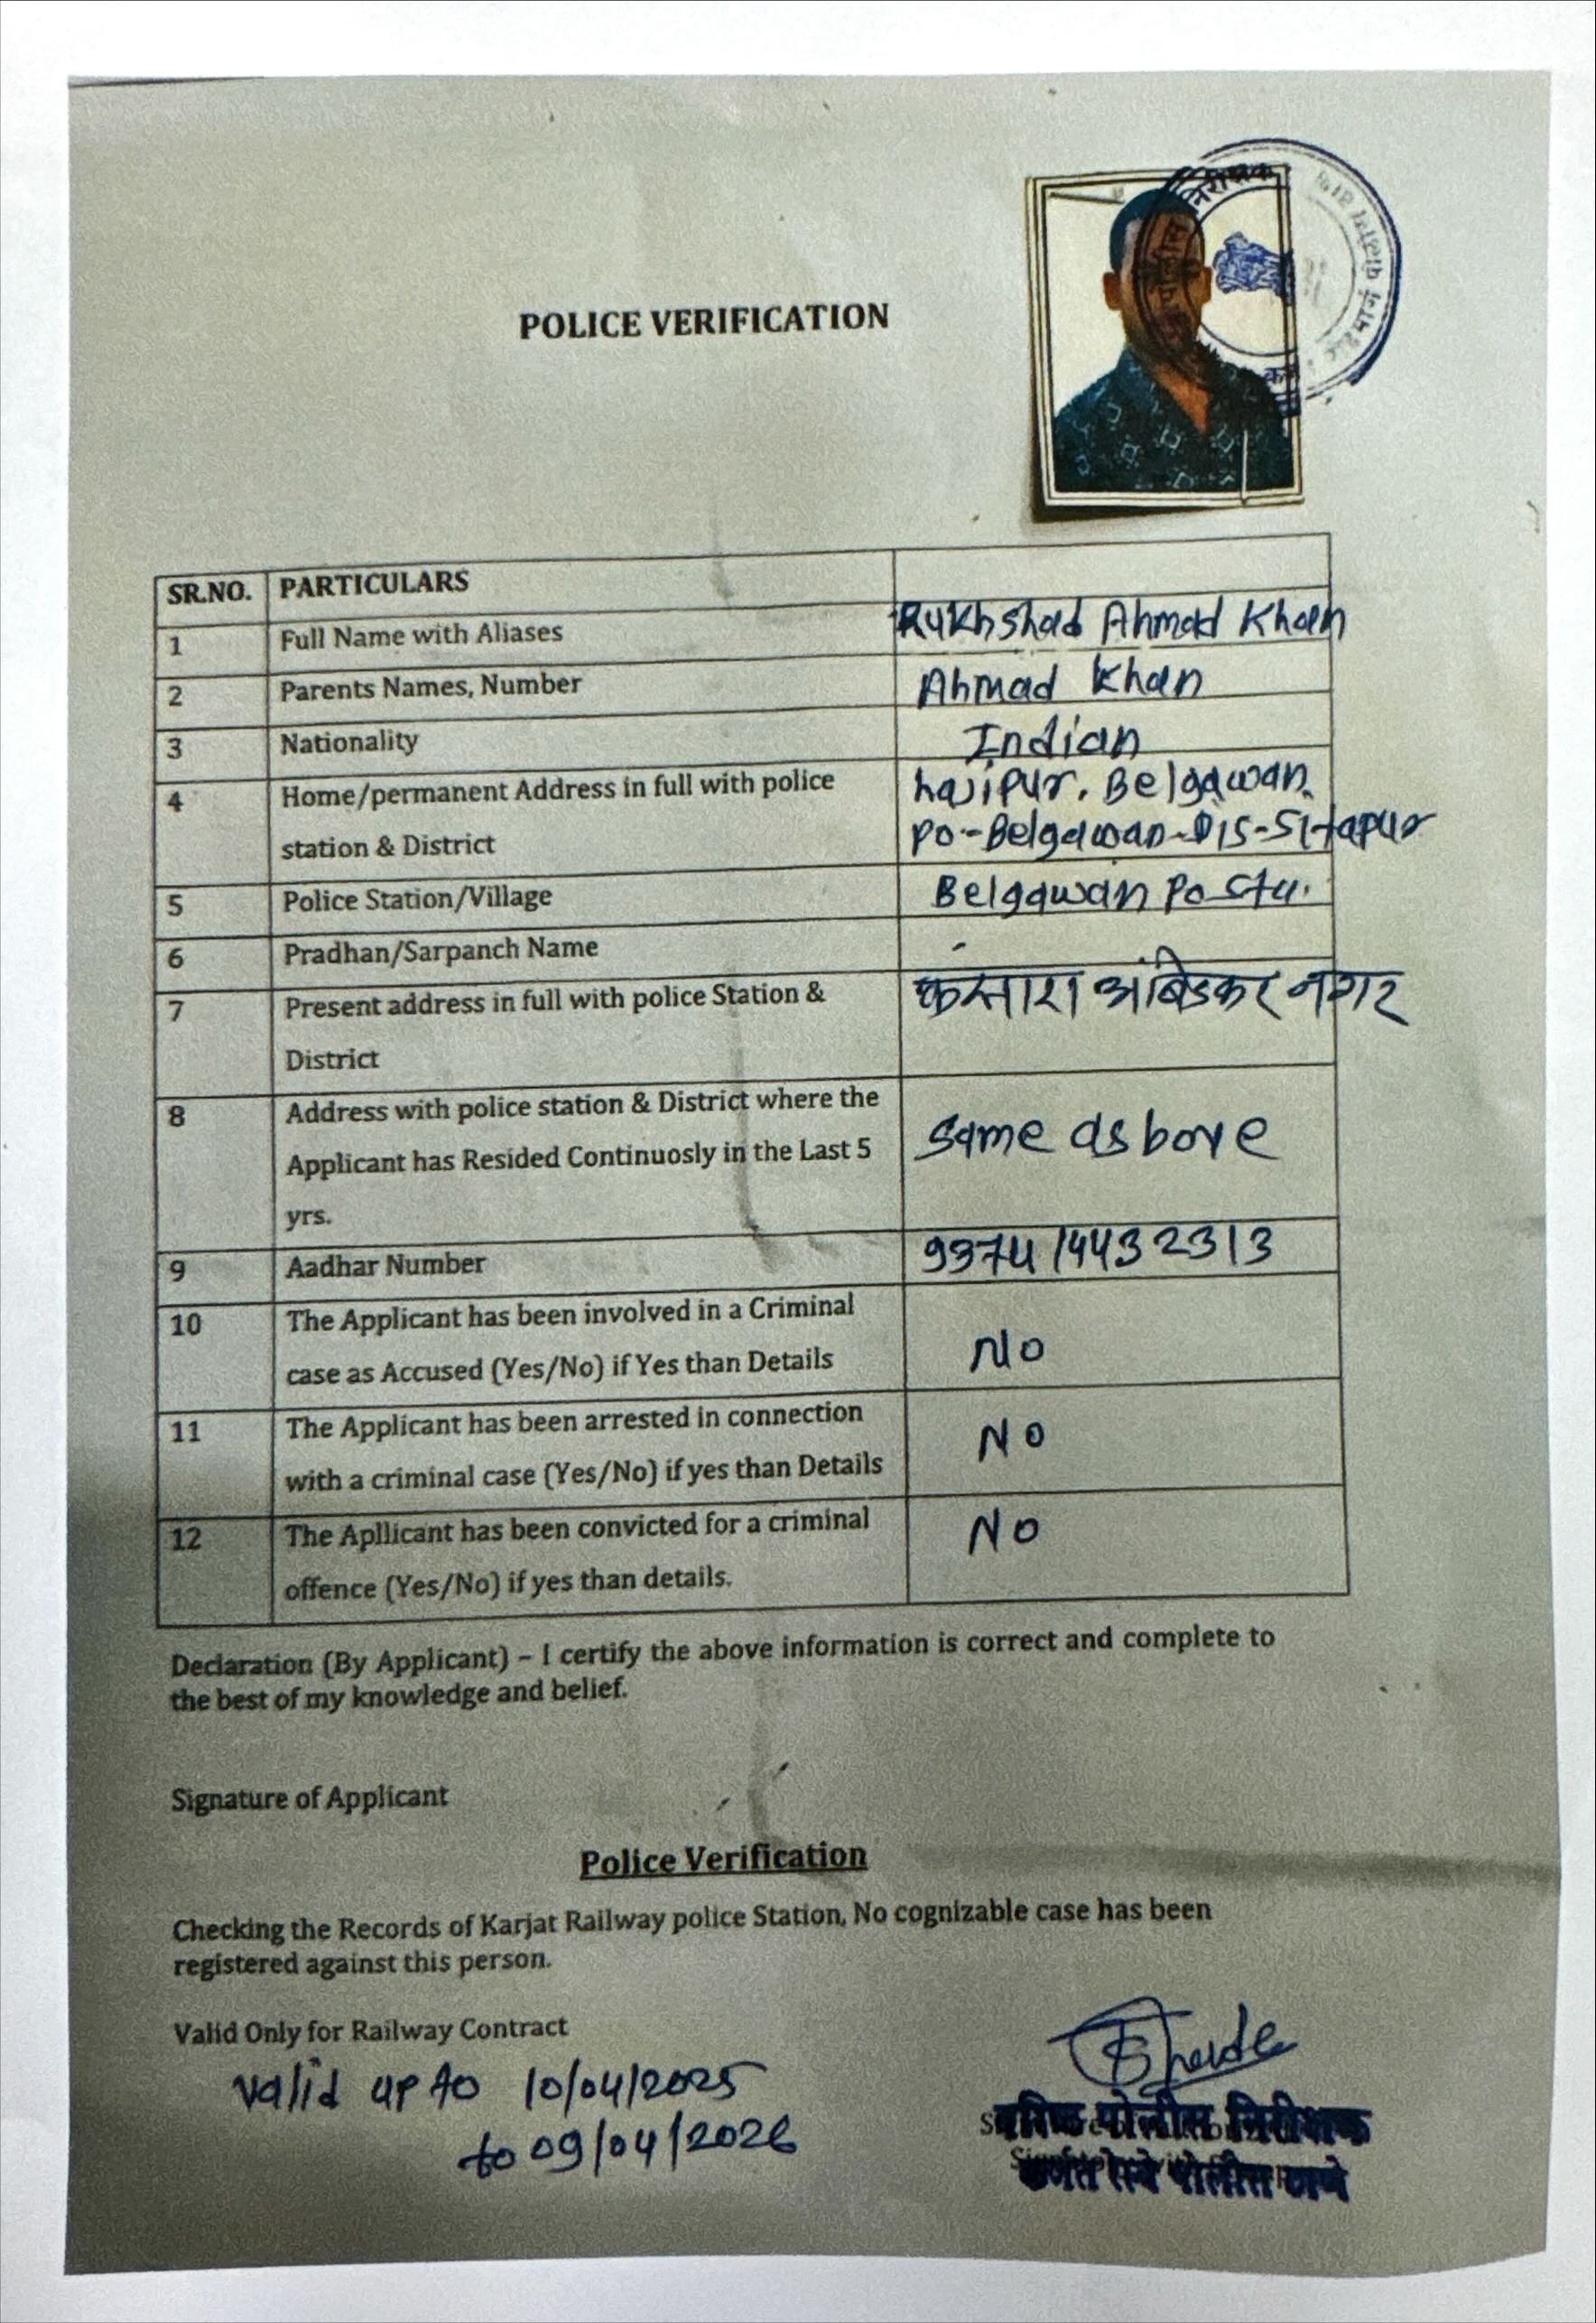 निरीक्षक
POLICE VERIFICATION
SR.NO. PARTICULARS
1 Full Name with Aliases Rukhshad Ahmad Khan
2 Parents Names, Number Ahmad Khan
3 Nationality Indian
4 Home/permanent Address in full with police hajipur. Belgawan.
station & District Po-Belgawan-Dis-Sitapur
5 Police Station/Village Belgawan Po Sta.
6 Pradhan/Sarpanch Name -
7 Present address in full with police Station & कसारा आंबेडकर नगर
District
8 Address with police station & District where the
Applicant has Resided Continuosly in the Last 5 Same as bove
yrs.
9 Aadhar Number 9374 14432313
10 The Applicant has been involved in a Criminal
case as Accused (Yes/No) if Yes than Details No
11 The Applicant has been arrested in connection
with a criminal case (Yes/No) if yes than Details No
12 The Apllicant has been convicted for a criminal No
offence (Yes/No) if yes than details.
Declaration (By Applicant) – I certify the above information is correct and complete to
the best of my knowledge and belief.
Signature of Applicant
Police Verification
Checking the Records of Karjat Railway police Station, No cognizable case has been
registered against this person.
Valid Only for Railway Contract
valid up to 10/04/2025
to 09/04/2026
वरिष्ठ पोलीस निरीक्षक
कर्जत रेल्वे पोलीस ठाणे